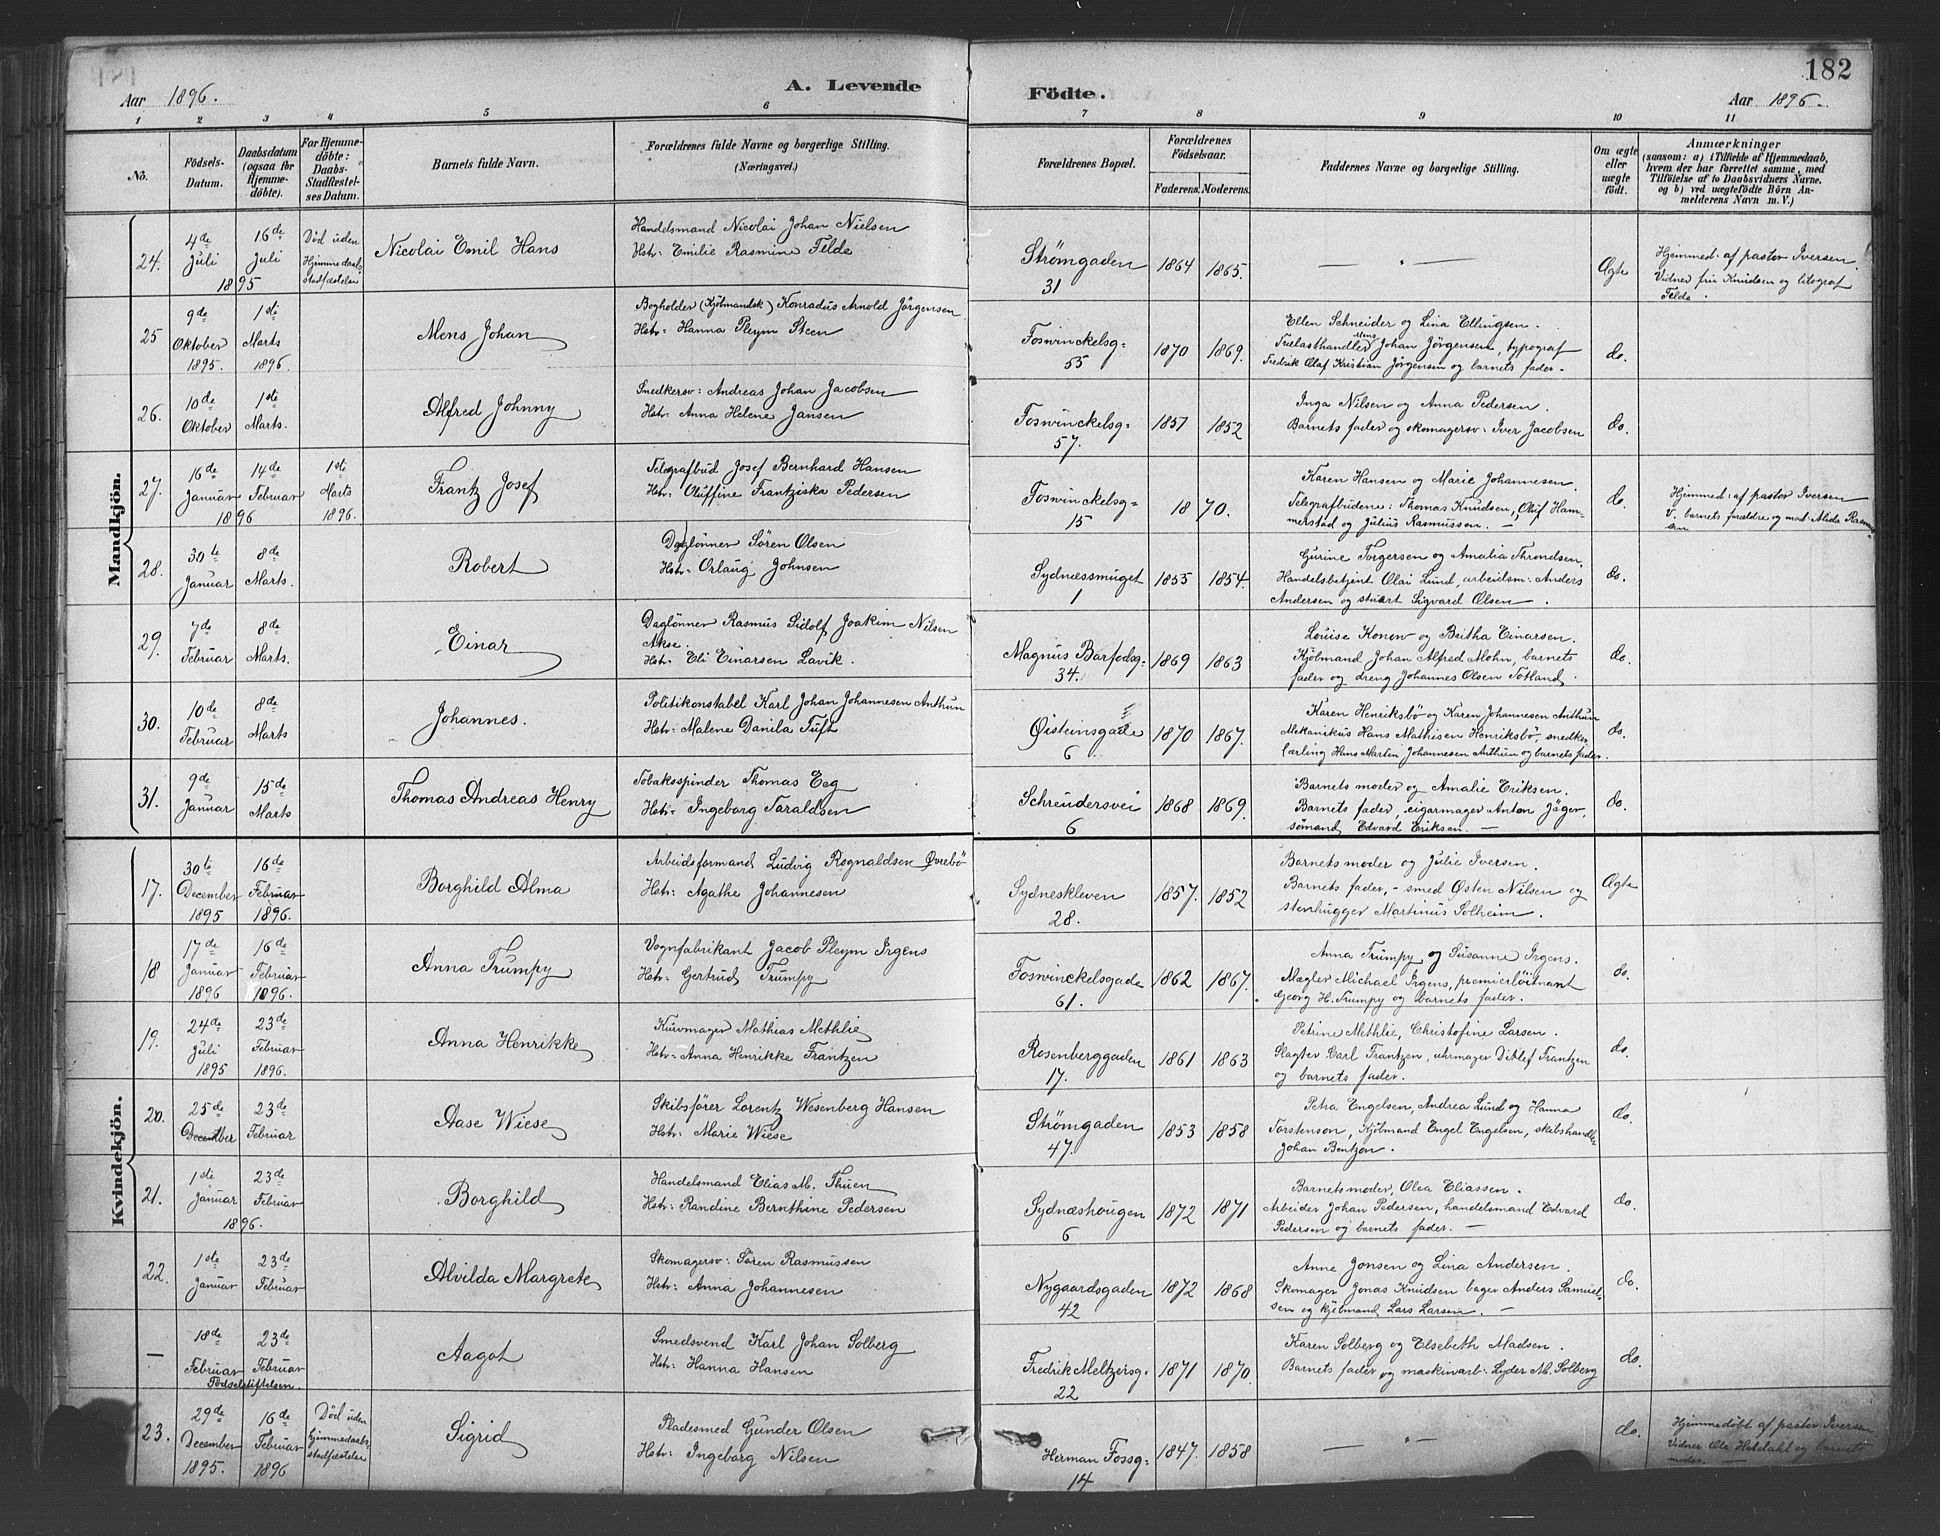 182
Aar 1896.
A. Levende Födte.
Aar 1896.
1 2 3 4 5 6 7 8 9 10 11
No.
Födsels-Datum.
Daabsdatum (ogsaa for Hjemmedöbte).
For Hjemmedöbte: Daabs-Stadfæstelses Datum.
Barnets fulde Navn.
Forældrenes fulde Navne og borgerlige Stilling. (Næringsvei.)
Forældrenes Bopæl.
Forældrenes Födselsaar.
Faderens. Moderens.
Faddernes Navne og borgerlige Stilling.
Om ægte eller uægte födt.
Anmærkninger (saasom: a) i Tilfælde af Hjemmedaab, hvem der har forrettet samme, med Tilföielse af to Daabsvidners Navne, og b) ved uægtefödte Börn Anmelderens Navn m. V.)
Mandkjön.
24.
4de Juli 1895
16de Juli
Död uden
Hjemmedaabs-
stadfæstelse
Nicolai Emil Hans
Handelsmand Nicolai Johan Nielsen
Hstr: Emilie Rasmine Felde
Strømgaden
31
1864 1865.
— " —
Ægte
Hjemmed: af pastor Iversen.
Vidner fru Knudsen og litograf
Felde.
25
9de Oktober 1895.
1ste Marts 1896.
Mens Johan
Bogholder (Kjöbmandsk) Konradus Arnold Jörgensen
Hstr: Hanna Pleym Steen
Foswinckelsg=
55
1870 1869.
Ellen Schneider og Lina Ellingsen.
Mens
Trælasthandler Johan Jörgensen, typograf
Fredrik Olaf Kristian Jörgensen og barnets fader.
do.
26.
10de Oktober
1ste Marts.
Alfred Johnny
Snedkersv: Andreas Johan Jacobsen
Hstr: Anna Helene Jansen
Foswinckelsg=
57.
1857 1852
Inga Nilsen og Anna Pedersen.
Barnets fader og skomagersv: Iver Jacobsen
do.
27.
16de Januar 1896
14de Februar
1ste Marts 1896.
Frantz Josef
Telegrafbud Josef Bernhard Hansen
Hstr: Oluffine Frantziska Pedersen
Foswinckelsg=
15
1870.
Karen Hansen og Marie Johannesen.
Telegrafbudene: Thomas Knudsen, Oluf Ham-
merstad og Julius Rasmussen. —
do.
Hjemmed: af pastor Iversen
V. barnets forældre og mad. Alida Rasmus-
sen
28.
30te Januar
8de Marts.
Robert
Daglönner Sören Olsen
Hstr: Orlaug Johnsen
Sydnæssmuget
1
1855 1854.
Gurine Torgersen og Amalia Throndsen,
Handelsbetjent Olai Lund, arbeidsm: Anders
Andersen og stuart Sigvard Olsen.
do.
29.
7de Februar
8de Marts.
Einar
Daglönner Rasmus Sidolf Joakim Nilsen
Akse.
Hstr: Eli Einarsen Lavik.
Magnus Barfodsg:
34.
1869 1863
Louise Konow og Britha Einarsen.
Kjöbmand Johan Alfred Mohn, barnets
fader og dreng Johannes Olsen Totland.
do.
30.
10de Februar
8de Marts
Johannes.
Politikonstabel Karl Johan Johannesen Anthun
Hstr: Malene Danila Tuft
Øisteinsgade
6
1870 1867.
Karen Henriksbö og Karen Johannesen Anthun
Mekanikus Hans Mathisen Henriksbö, snedker
lærling Hans Martin Johannesen Anthun og barnets fader.
do.
31.
9de Januar
15de Marts
Thomas Andreas Henry
Tobaksspinder Thomas Eeg
Hstr: Ingeborg Taraldsen
Schreudersvei
6
1868 1869.
Barnets moder og Amalie Eriksen.
Barnets fader, cigarmager Anton Jäger,
sömand Edvard Eriksen. —
do.
Kvindekjön.
17.
30te December 1895
16de Februar 1896.
Borghild Alma
Arbeidsformand Ludvig Rognaldsen Øvrebö
Hstr: Agathe Johannesen
Sydneskleven
28.
1857. 1852
Barnets moder og Julie Iversen.
Barnets fader, - smed Østen Nilsen og
stenhugger Martinus Solheim.
Ægte
18
17de Januar 1896
16de Februar 1896.
Anna Trumpy
Vognfabrikant Jacob Pleym Irgens
Hstr: Gertrud Trumpy
Foswinckelsgade
61.
1862 1867.
Anna Trumpy og Susanne Irgens.
Mægler Michael Irgens, premierlöitnant
Georg H. Trumpy og barnets fader.
do.
19.
24de Juli 1895
23de Februar 1896.
Anna Henrikke
Kurvmager Mathias Methlie
Hstr: Anna Henrikke Frantzen
Rosenberggaden
17.
1861 1863
Petrine Methlie, Christofine Larsen.
Slagter Carl Frantzen, uhrmager Ditlef Frantzen
og barnets fader.
do.
20.
25de December
23de Februar
Aase Wiese
Skibsförer Lorentz Wesenberg Hansen
Hstr: Marie Wiese
Strömgaden
47.
1853 1858
Petra Engelsen, Andrea Lund og Hanna
Torstenson, Kjöbmand Engel Engelsen, skibshandler
Johan Bentzon.
do.
21.
1ste Januar 1896.
23de Februar
Borghild
Handelsmand Elias M. Thuen
Hstr: Randine Bernthine Pedersen
Sydnæshougen
6
1872 1871
Barnets moder, Olea Eliassen.
Arbeider Johan Pedersen, handelsmand Edvard
Pedersen og barnets fader. —
do.
22.
1ste Januar
23de Februar
Alvilda Margrete
Skomagersv: Sören Rasmussen
Hstr: Anna Johannesen
Nygaardsgaden
42
1872 1868
Anne Jonsen og Lina Andersen.
Skomager Jonas Knudsen bager Anders Samuel-
sen og kjöbmand Lars Larsen. —
do.
—
18de Februar
23de Februar
Födselstiftelsen.
Aagot
Smedsvend Karl Johan Solberg
Hstr: Hanna Hansen
Fredrik Meltzersg=
22
1871 1870.
Karen Solberg og Elsebeth Madsen.
Barnets fader og maskinarb. Lyder M. Solberg
do.
23.
29de December 1895.
16de Februar 1896
Död uden
hjemmedaabs-
stadfæstelse
Sigrid
Pladesmed Gunder Olsen
Hstr: Ingeborg Nilsen
Herman Fossg=
14
1847. 1858
— " —
do.
Hjemmedöbt af pastor Iversen.
Vidner Ole Hatdahl og barnets
moder. —